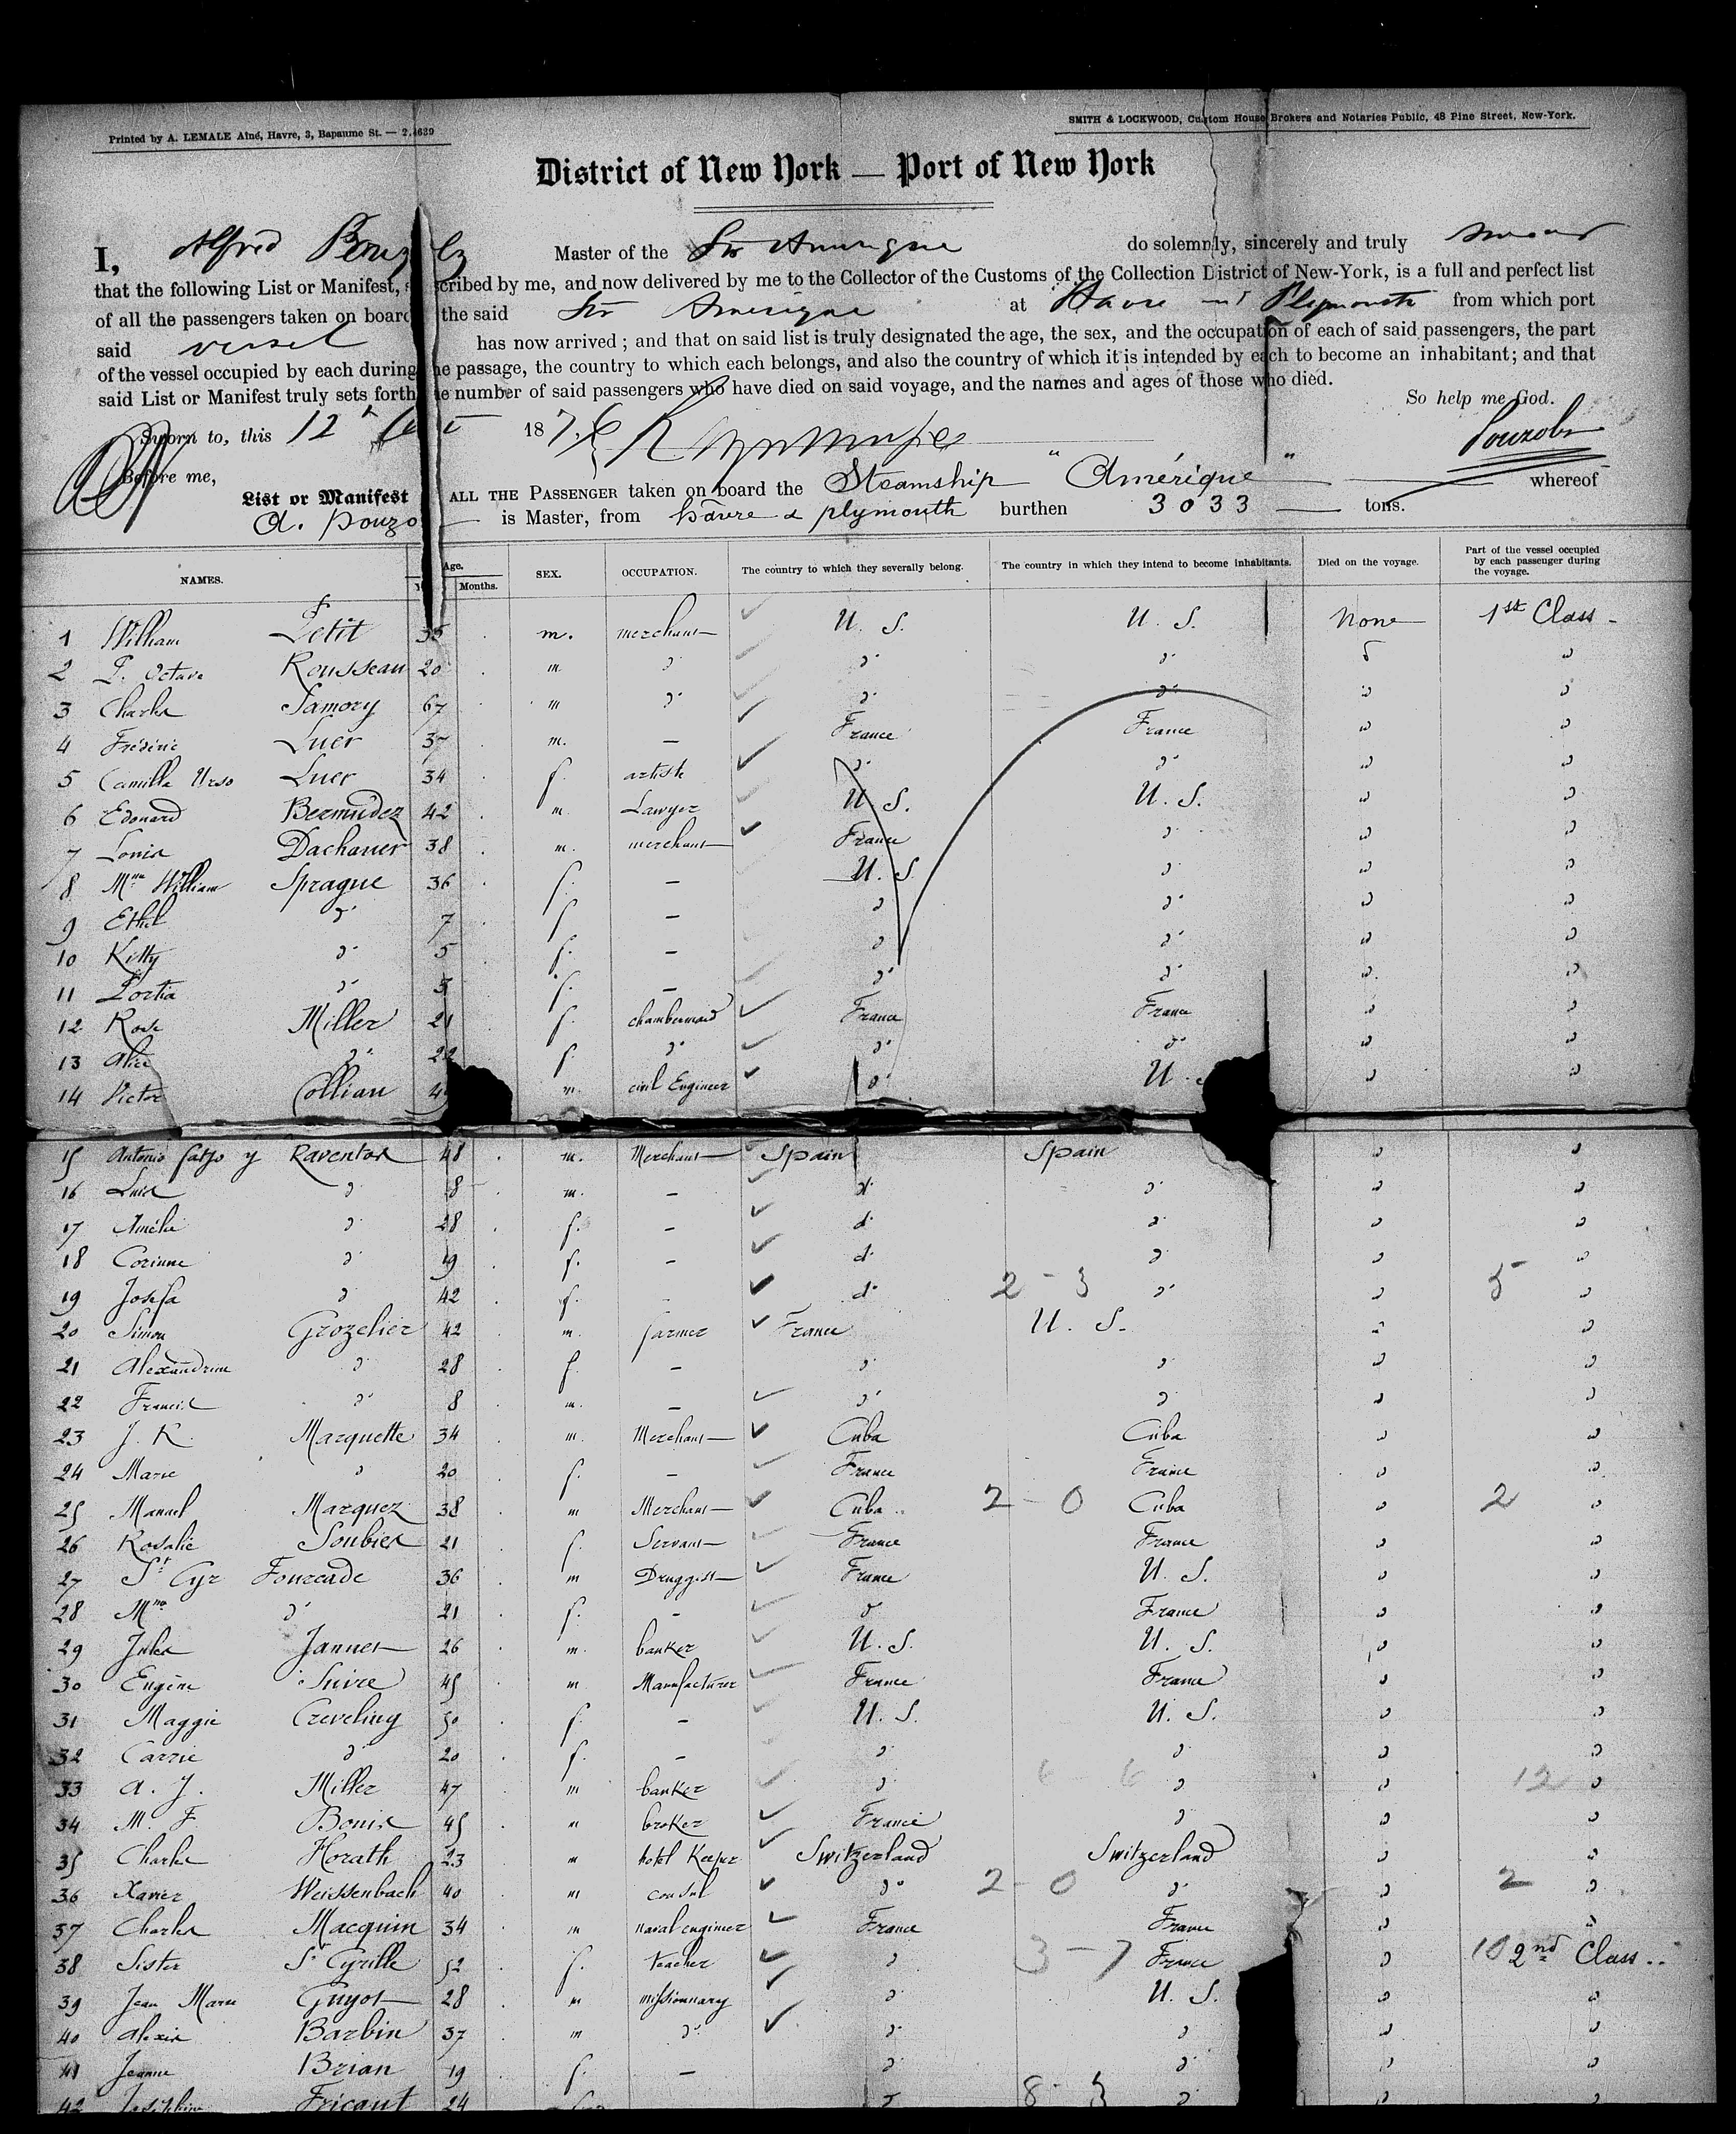 Printed by A. LEMALE Ainé, Havre, 3, Bapaume St. — 2,4639
SMITH & LOCKWOOD, Custom House Brokers and Notaries Public, 48 Pine Street, New-York.
District of New York — Port of New York
I, Alfred Master of the Str Amerique do solemnly, sincerely and truly swear
that the following List or Manifest, scribed by me, and now delivered by me to the Collector of the Customs of the Collection District of New-York, is a full and perfect list
of all the passengers taken on board the said Str Amerique at Havre and Plymouth from which port
said vessel has now arrived ; and that on said list is truly designated the age, the sex, and the occupation of each of said passengers, the part
of the vessel occupied by each during he passage, the country to which each belongs, and also the country of which it is intended by each to become an inhabitant; and that
said List or Manifest truly sets forth e number of said passengers who have died on said voyage, and the names and ages of those who died.
So help me God.
Sworn to, this 12 1876
Before me,
List or Manifest ALL THE PASSENGER taken on board the Steamship "Amérique" whereof
A. Pouzo is Master, from hâvre & plymouth burthen 3033 tons.
NAMES. Age. Months. SEX. OCCUPATION. The country to which they severally belong. The country in which they intend to become inhabitants. Died on the voyage. Part of the vessel occupied by each passenger during the voyage.
1 William Petit 35 m. merchant U. S. U. S. None 1st Class
2 P. Octave Rousseau 20 m d° d° d° d°
3 Charles Jamory 67 m d° d° d° d° d°
4 Frédéric Luer 37 m. — France France d° d°
5 Camilla Urso Luer 34 f. artiste d° d° d° d°
6 Edouard Bermudez 42 m. Lawyer U. S. U. S. d° d°
7 Louis Dachauer 38 m. merchant France d° d° d°
8 Mme William Sprague 36 f. — U. S. d° d° d°
9 Ethel d° 7 f. — d° d° d° d°
10 Kitty d° 5 f. — d° d° d° d°
11 Portia d° 5 f. — d° d° d° d°
12 Rose Miller 21 f. chambermaid France France d° d°
13 Alice d° 22 f. d° d° d° d° d°
14 Victor Collian 4 m. civil Engineer d° U. d° d°
15 Antonio y Raventos 48 m. Merchant Spain Spain d° d°
16 Luis d° 8 m. — d° d° d° d°
17 Amélie d° 28 f. — d° d° d° d°
18 Corinne d° 19 f. — d° d° d° d°
19 Josefa d° 42 f. — d° 2 - 3 d° d° 5 d°
20 Simon Grozelier 42 m. farmer France U. S. d° d°
21 Alexandrine d° 28 f. — d° d° d° d°
22 Francis d° 8 m. — d° d° d° d°
23 J. R. Marquette 34 m. Merchant Cuba Cuba d° d°
24 Marie d° 20 f. — France France d° d°
25 Manuel Marquez 38 m Merchant Cuba 2 - 0 Cuba d° 2 d°
26 Rosalie Soubies 21 f. Servant France France d° d°
27 St Cyr Fourcade 36 m Druggist France U. S. d° d°
28 Mme d° 21 f. — d° France d° d°
29 Jules Jannet 26 m. banker U. S. U. S. d° d°
30 Eugène Suire 45 m Manufacturer France France d° d°
31 Maggie Creveling 50 f. — U. S. U. S. d° d°
32 Carrie d° 20 f. — d° d° d° d°
33 A. J. Miller 47 m banker d° 6 6 d° d° 12 d°
34 M. F. Bonis 45 m broker France d° d° d°
35 Charles Horath 23 m hotel Keeper Switzerland Switzerland d° d°
36 Xavier Weissenbach 40 m consul d° 2 - 0 d° d° 2 d°
37 Charles Macquin 34 m naval engineer France France d° d°
38 Sister St Cyrille 52 f. teacher d° 3 - 7 France d° 10 2nd Class
39 Jean Marie Guyot 28 m missionnary d° U. S. d° d°
40 Alexis Barbin 37 m d° d° d° d° d°
41 Jeanne Brian 19 f. — d° d° d° d°
42 Joséphine Fricaut 24 d° 8 - 3 d° d° d°